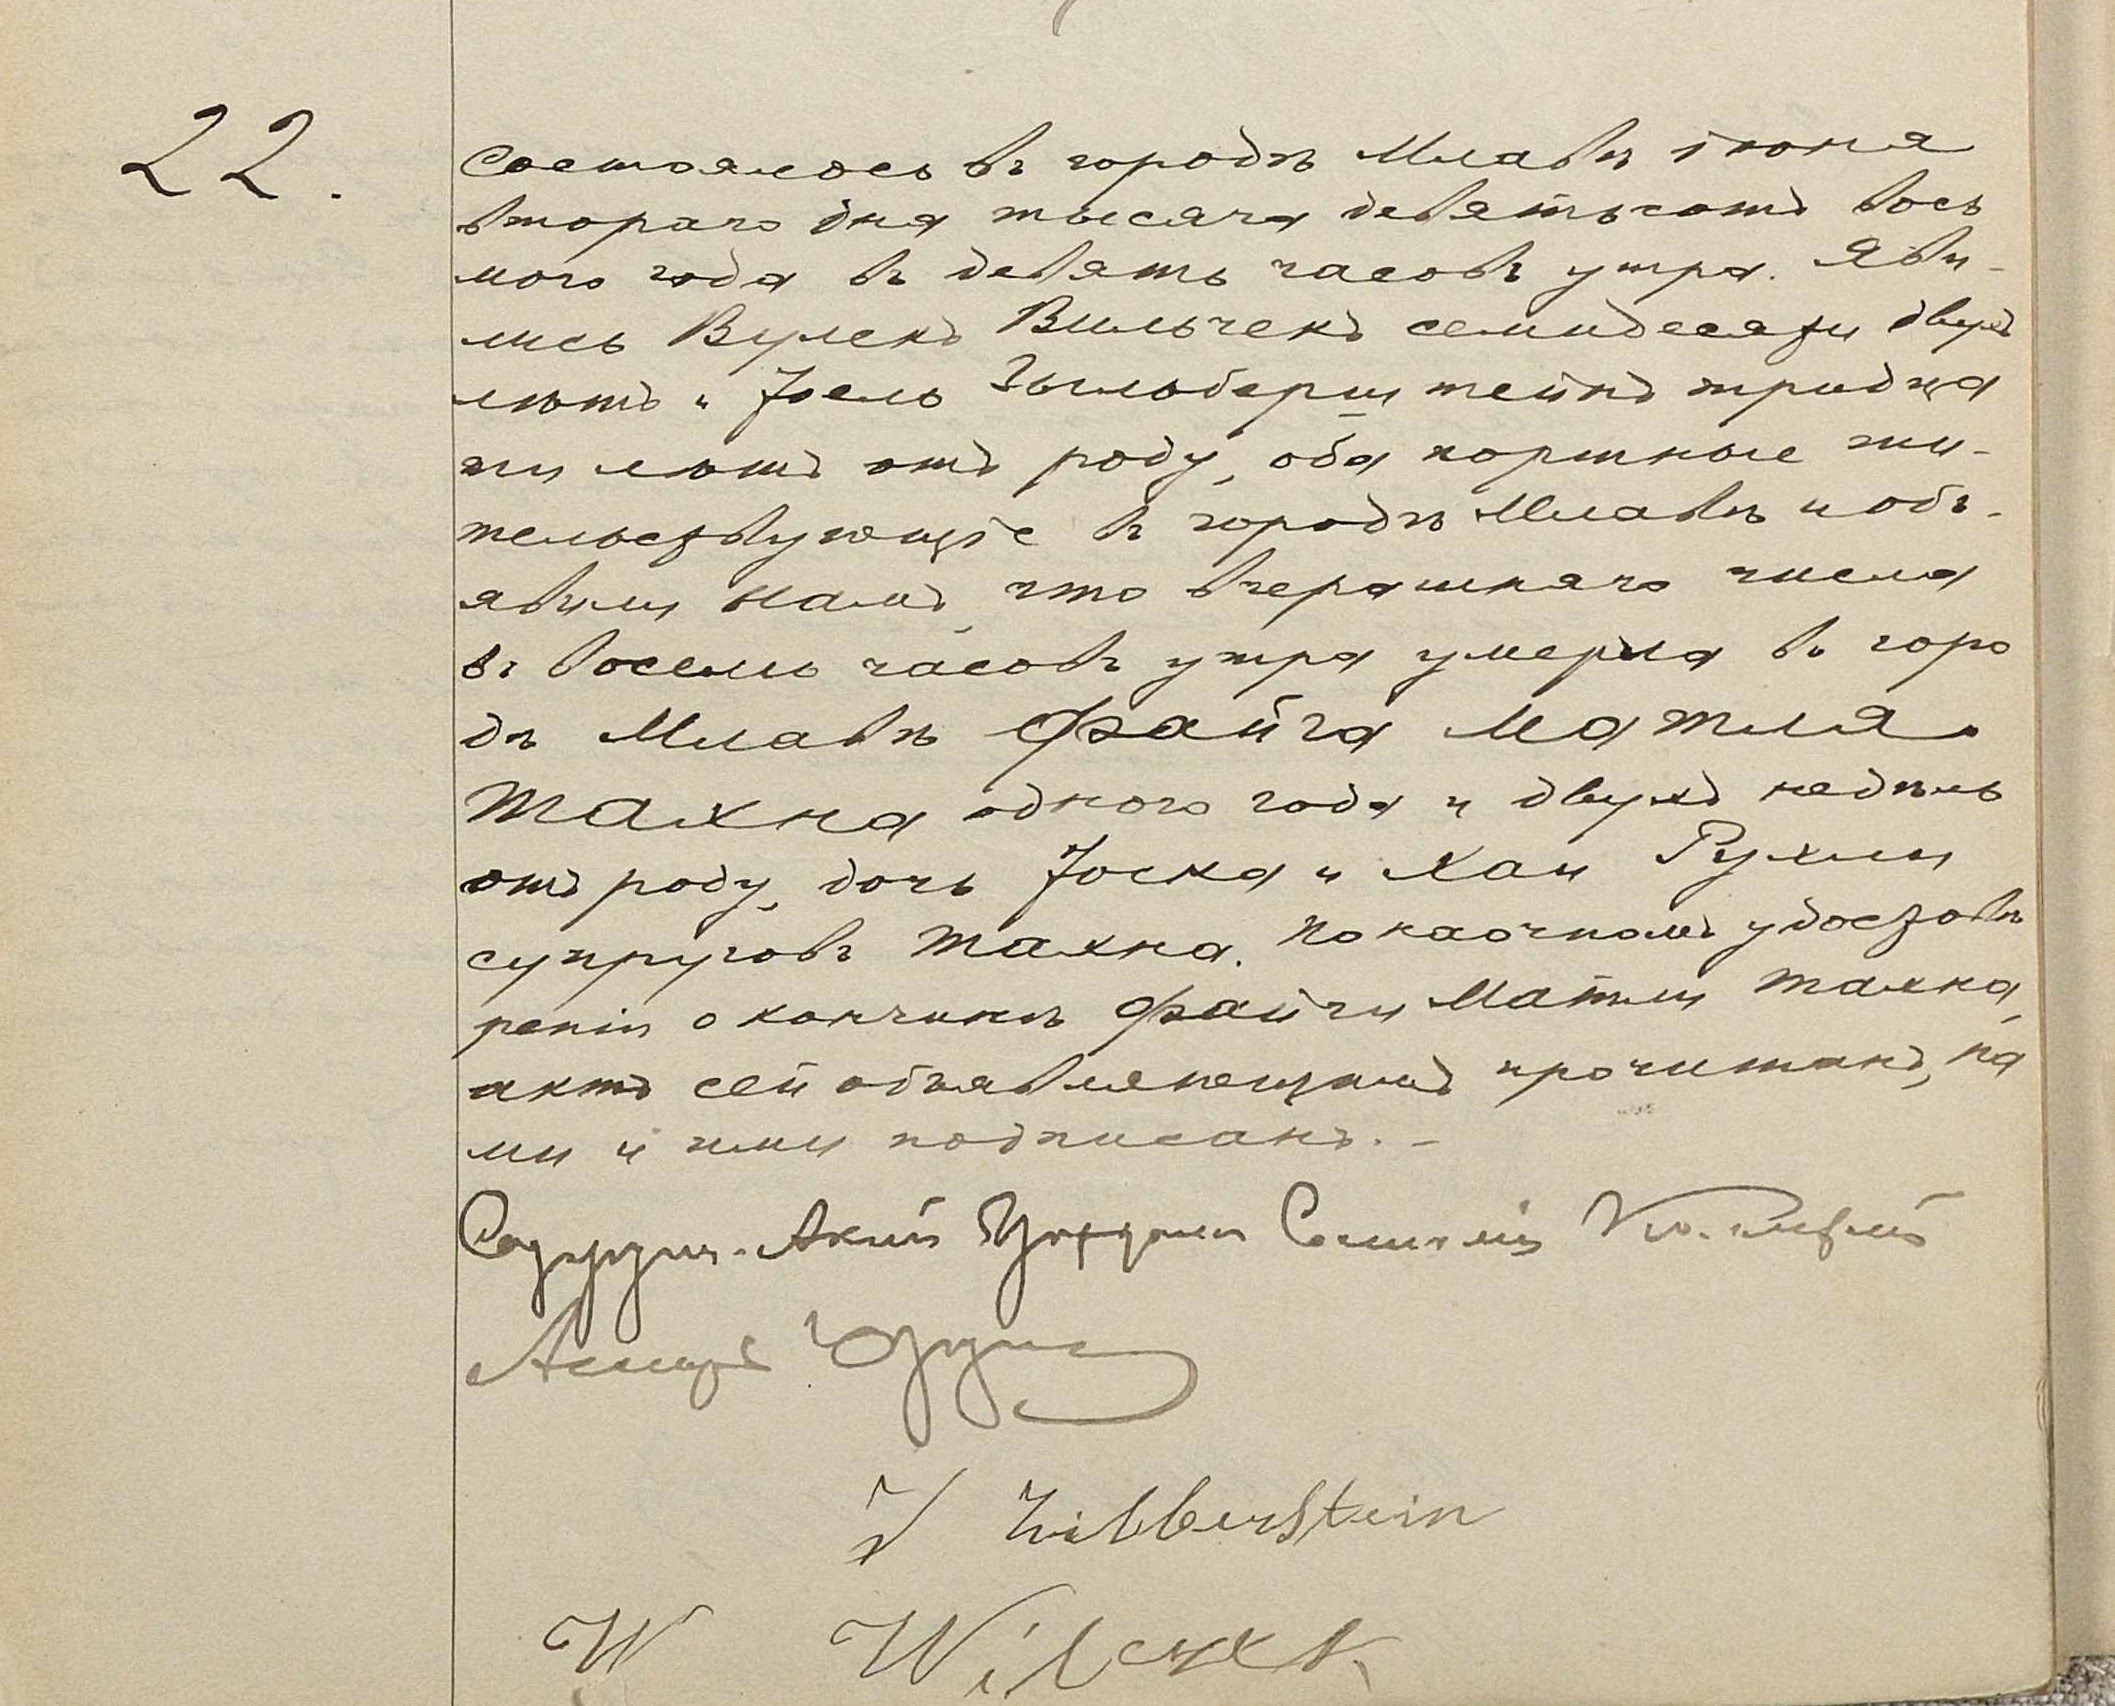 22.
Состоялось въ городѣ Млавѣ іюня
втораго дня тысяча девятьсотъ вось
мого года въ девять часовъ утра. Яви-
лись Вулекъ Вильчекъ семидесяти двухъ
лѣтъ и Іоель Зыльберштейнъ тридца
ти лѣтъ отъ роду, оба портные жи-
тельствующіе въ городѣ Млавѣ и объ-
явили намъ, что вчерашняго числа
въ восемь часовъ утра умерла въ горо
дѣ Млавѣ Файга Матля
Тахна одного года и двухъ недѣль
отъ роду, дочь Іоска и Хаи Рухли
супруговъ Тахна. По наочномъ удостовѣ
реніи о кончинѣ Файги Матли Тахна,
актъ сей объявляющимъ прочитанъ, на
ми и ими подписанъ.-
Содержащ. Акты Гражданск Состоянія
J Zilberstein
W Wilczek